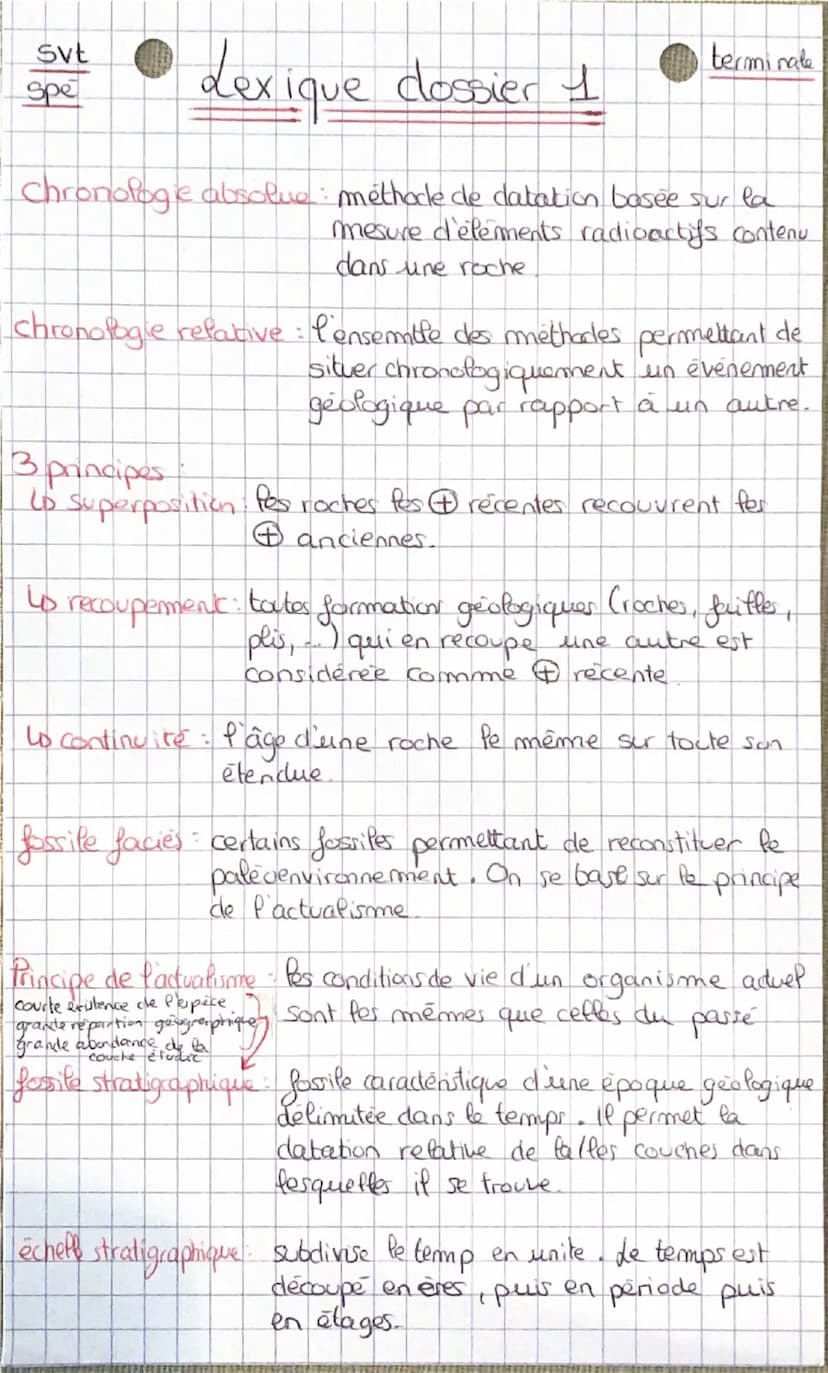 svt
spé
Lexique dossier 1
terminale
chronologie absolue : méthode de datation basée sur la
mesure d'éléments radioactifs contenu
dans une roche.
chronologie relative : l'ensemble des méthodes permettant de
situer chronologiquement un événement
géologique par rapport à un autre.
3 principes :
↳ superposition : les roches les ⊕ récentes recouvrent les
⊕ anciennes.
↳ recoupement : toutes formations géologiques (roches, failles,
plis, ...) qui en recoupe une autre est
considérée comme ⊕ récente.
↳ continuité : l'âge d'une roche le même sur toute son
étendue.
fossile faciès : certains fossiles permettant de reconstituer le
paléoenvironnement. On se base sur le principe
de l'actualisme.
Principe de l'actualisme : les conditions de vie d'un organisme actuel
sont les mêmes que celles du passé
courte existence de l'espèce
grande répartion géographique
grande abondance de la
couche étudié
fossile stratigraphique : fossile caractéristique d'une époque géologique
délimitée dans le temps. Il permet la
datation relative de la/les couches dans
lesquelles il se trouve.
échelle stratigraphique : subdivise le temp en unite. Le temps est
découpé en ères, puis en période puis
en étages.